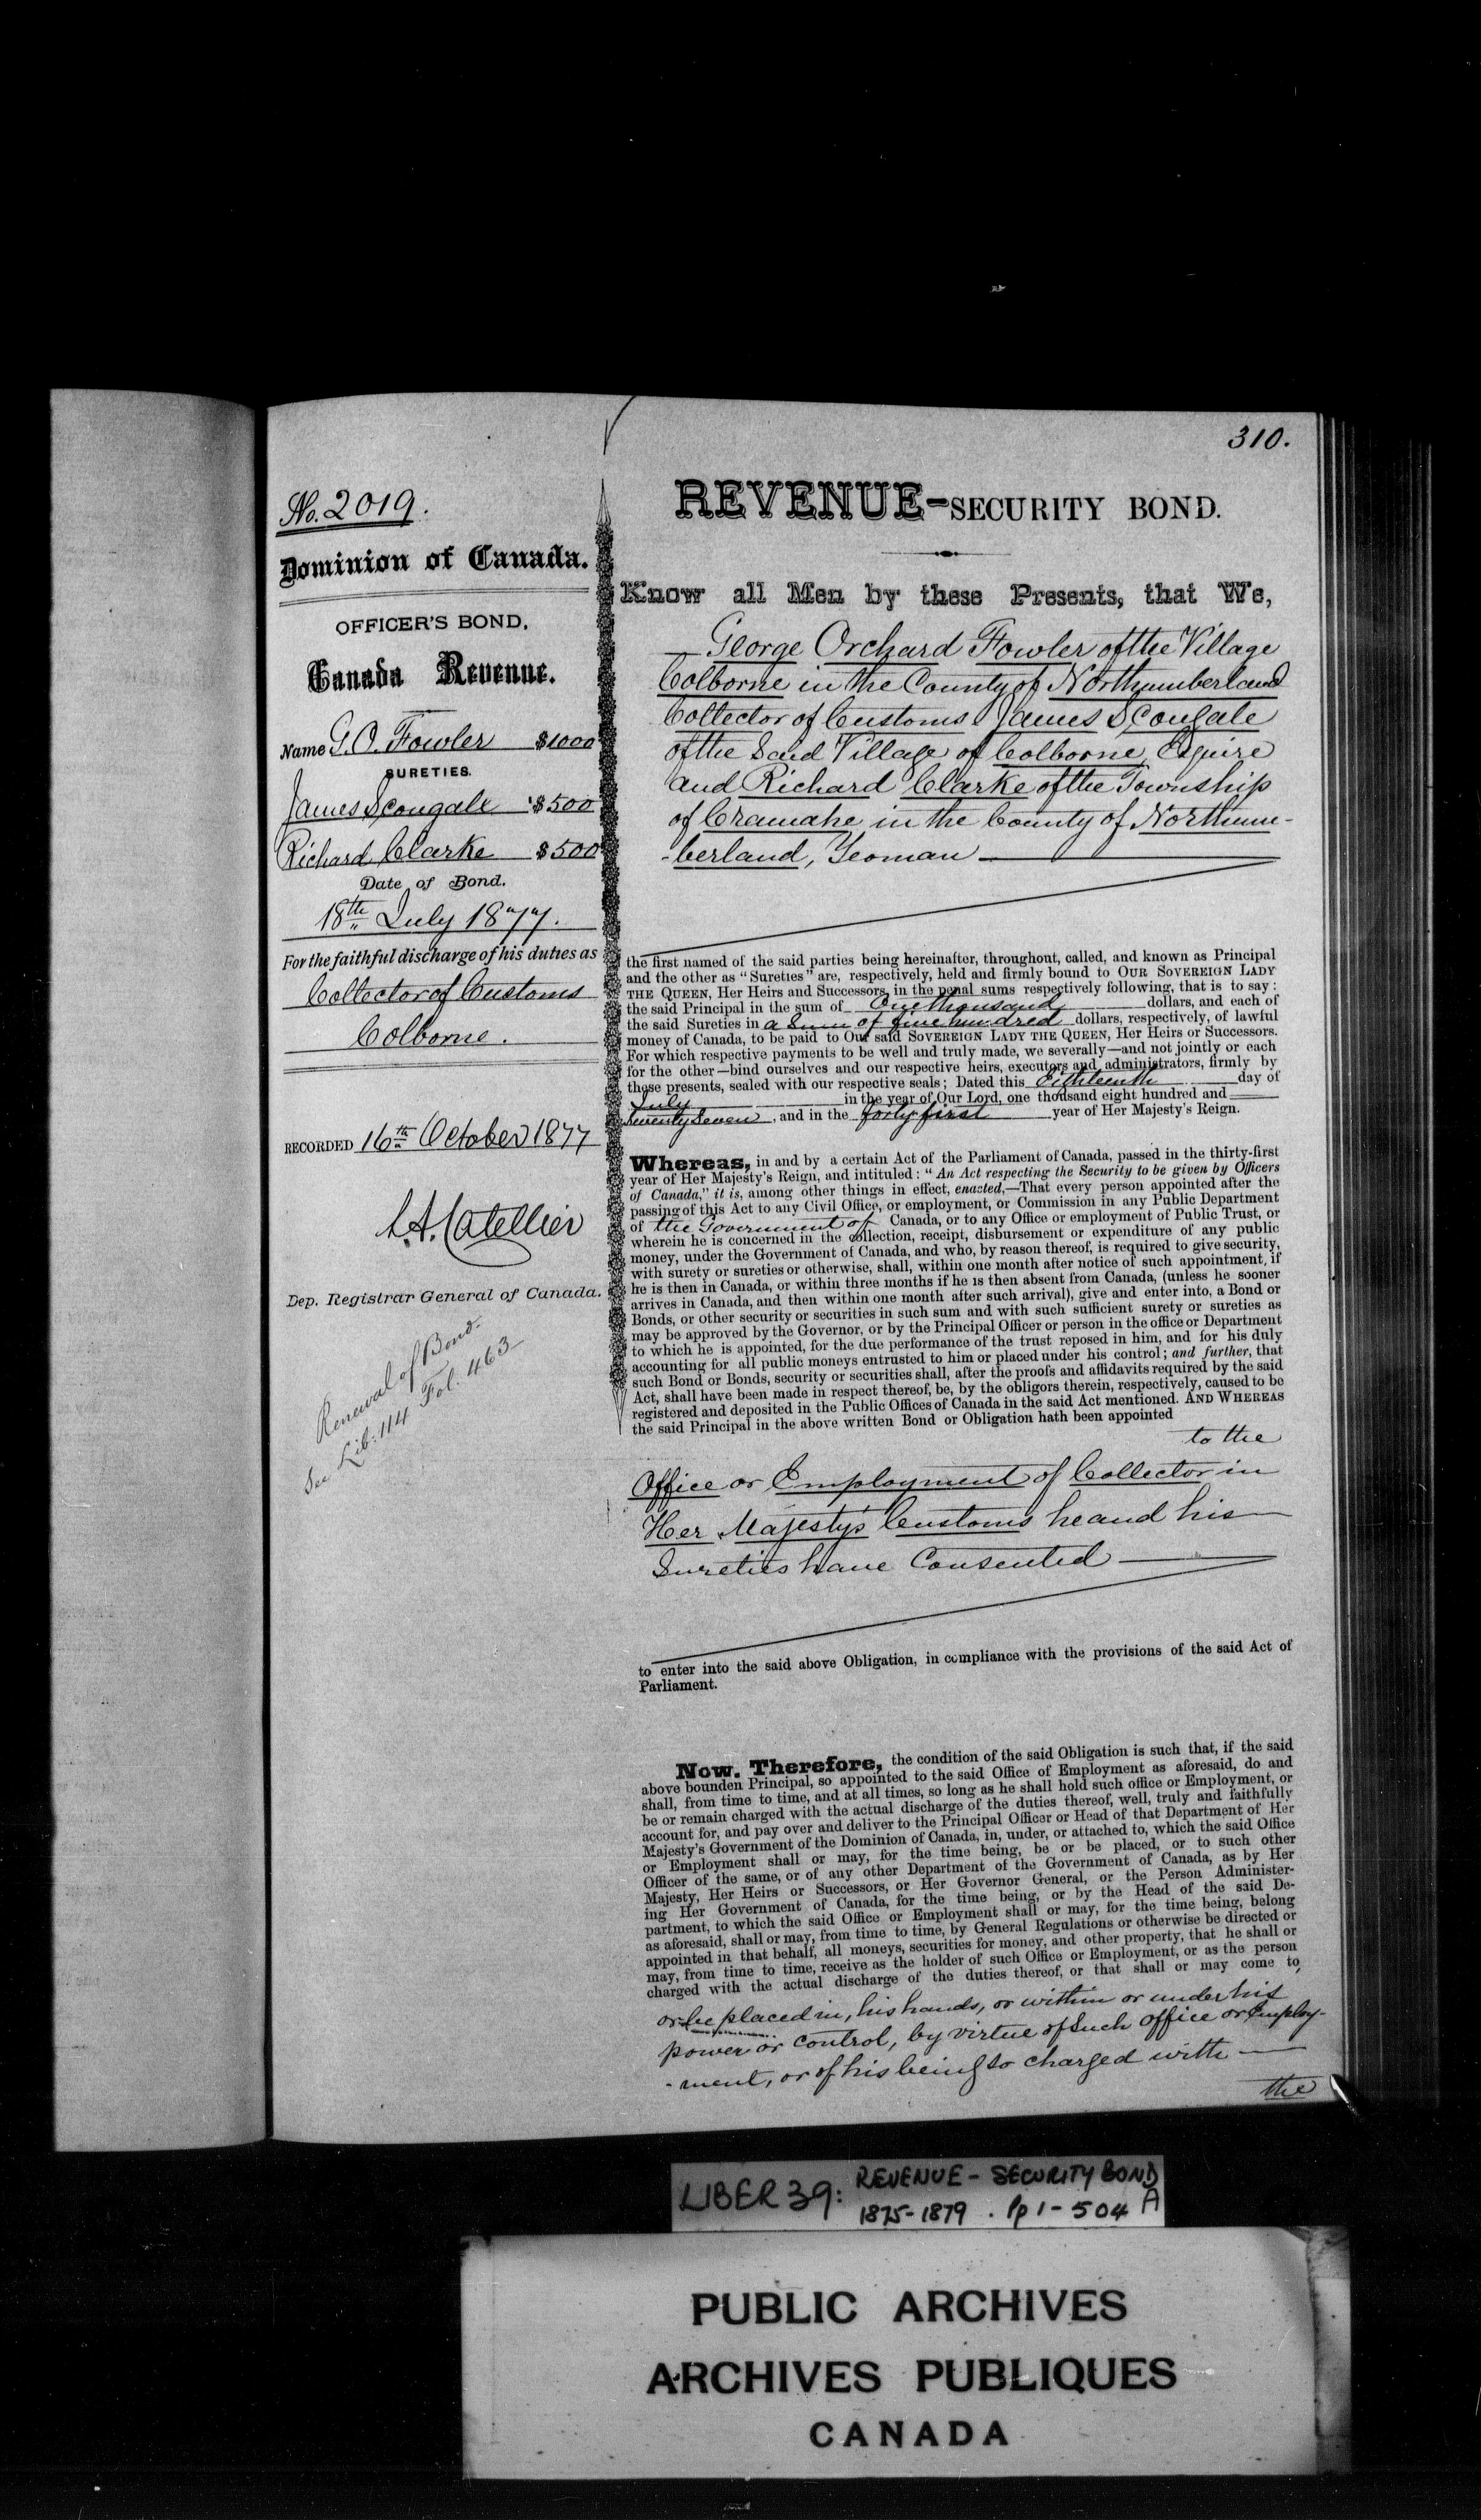 310.
No. 2019.
Dominion of Canada.
OFFICER'S BOND,
Canada Revenue.
Name G. O. Fowler $1000
SURETIES.
James Scougale $500
Richard Clarke $500
Date of Bond.
18th July 1877.
For the faithful discharge of his duties as
Collector of Customs
Colborne.
RECORDED 16th October 1877
L. A. Catellier
Dep. Registrar General of Canada.
Renewal of Bond
See Lib: 114 Fol. 463
REVENUE-SECURITY BOND.
Know all Men by these Presents, that We,
George Orchard Fowler of the Village
Colborne in the County of Northumberland
Collector of Customs James Scougale
of the Said Village of Colborne, Esquire
and Richard Clarke of the Township
of Cramahe in the County of Northum-
-berland, Yeoman
the first named of the said parties being hereinafter, throughout, called, and known as Principal
and the other as "Sureties" are, respectively, held and firmly bound to OUR SOVEREIGN LADY
THE QUEEN, Her Heirs and Successors, in the penal sums respectively following, that is to say:
the said Principal in the sum of One thousand dollars, and each of
the said Sureties in a Sum of five hundred dollars, respectively, of lawful
money of Canada, to be paid to Our said SOVEREIGN LADY THE QUEEN, Her Heirs or Successors.
For which respective payments to be well and truly made, we severally—and not jointly or each
for the other—bind ourselves and our respective heirs, executors and administrators, firmly by
these presents, sealed with our respective seals; Dated this Eighteenth day of
July in the year of Our Lord, one thousand eight hundred and
Seventy Seven, and in the forty first year of Her Majesty's Reign.
Whereas, in and by a certain Act of the Parliament of Canada, passed in the thirty-first
year of Her Majesty's Reign, and intituled: "An Act respecting the Security to be given by Officers
of Canada," it is, among other things in effect, enacted,—That every person appointed after the
passing of this Act to any Civil Office, or employment, or Commission in any Public Department
of the Government of Canada, or to any Office or employment of Public Trust, or
wherein he is concerned in the collection, receipt, disbursement or expenditure of any public
money, under the Government of Canada, and who, by reason thereof, is required to give security,
with surety or sureties or otherwise, shall, within one month after notice of such appointment, if
he is then in Canada, or within three months if he is then absent from Canada, (unless he sooner
arrives in Canada, and then within one month after such arrival), give and enter into, a Bond or
Bonds, or other security or securities in such sum and with such sufficient surety or sureties as
may be approved by the Governor, or by the Principal Officer or person in the office or Department
to which he is appointed, for the due performance of the trust reposed in him, and for his duly
accounting for all public moneys entrusted to him or placed under his control; and further, that
such Bond or Bonds, security or securities shall, after the proofs and affidavits required by the said
Act, shall have been made in respect thereof, be, by the obligors therein, respectively, caused to be
registered and deposited in the Public Offices of Canada in the said Act mentioned. AND WHEREAS
the said Principal in the above written Bond or Obligation hath been appointed
to the
Office or Employment of Collector in
Her Majesty's Customs he and his
Sureties have Consented
to enter into the said above Obligation, in compliance with the provisions of the said Act of
Parliament.
Now. Therefore, the condition of the said Obligation is such that, if the said
above bounden Principal, so appointed to the said Office of Employment as aforesaid, do and
shall, from time to time, and at all times, so long as he shall hold such office or Employment, or
be or remain charged with the actual discharge of the duties thereof, well, truly and faithfully
account for, and pay over and deliver to the Principal Officer or Head of that Department of Her
Majesty's Government of the Dominion of Canada, in, under, or attached to, which the said Office
or Employment shall or may, for the time being, be or be placed, or to such other
Officer of the same, or of any other Department of the Government of Canada, as by Her
Majesty, Her Heirs or Successors, or Her Governor General, or the Person Administer-
ing Her Government of Canada, for the time being, or by the Head of the said De-
partment, to which the said Office or Employment shall or may, for the time being, belong
as aforesaid, shall or may, from time to time, by General Regulations or otherwise be directed or
appointed in that behalf, all moneys, securities for money, and other property, that he shall or
may, from time to time, receive as the holder of such Office or Employment, or as the person
charged with the actual discharge of the duties thereof, or that shall or may come to,
or be placed in, his hands, or within or under his
power or control, by virtue of Such office or Employ-
-ment, or of his being so charged with
the
LIBER 39: REVENUE - SECURITY BOND
1875-1879 . Pp 1-504 A
PUBLIC ARCHIVES
ARCHIVES PUBLIQUES
CANADA